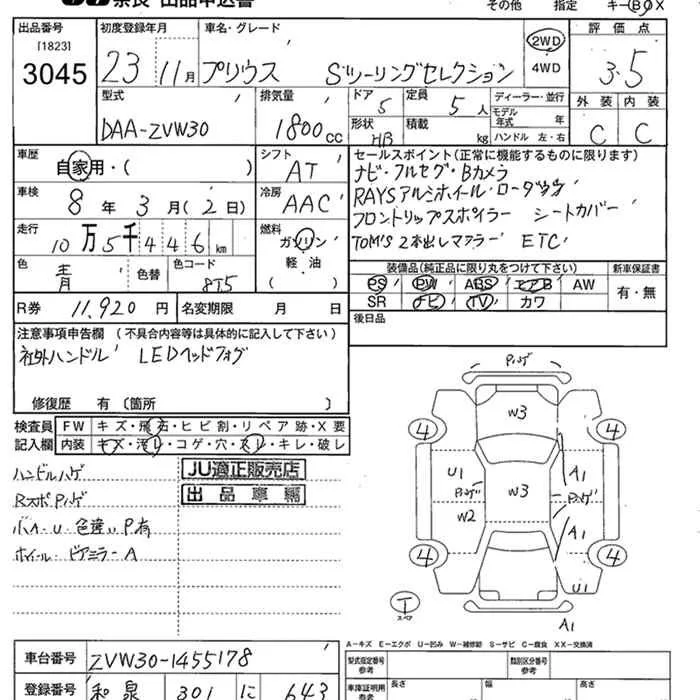 奈良 出品申込書
その他 指定 キーBOX
出品番号 [1823] 3045
初度登録年月 23 11月
車名・グレード プリウス Sツーリングセレクション
2WD 4WD
評価点 3.5
型式 DAA-ZVW30
排気量 1800cc
ドア 5 定員 5人
形状 HB 積載 kg
ディーラー・並行
モデル年式 年
ハンドル 左・右
外装 C 内装 C
車歴 自家用・( )
シフト AT
車検 8年3月(2日)
冷房 AAC
走行 10万5千446km
燃料 ガソリン 軽・油 ( )
色 青 色替 色コード 8T5
R券 11,920円 名変期限 月 日
セールスポイント(正常に機能するものに限ります)
ナビ・フルセグ・Bカメラ
RAYSアルミホイール・ローダウン
フロントリップスポイラー シートカバー
TOM'S 2本出しマフラー ETC
装備品(純正品に限り丸をつけて下さい) 新車保証書
PS PW ABS エアB AW 有・無
SR ナビ TV カワ
後日品
注意事項申告欄 (不具合内容等は具体的に記入して下さい)
社外ハンドル LEDヘッドフォグ
修復歴 有〔箇所 〕
検査員 FW キズ・飛石・ヒビ割・リペア跡・X要
記入欄 内装 キズ・汚レ・コゲ・穴・スレ・キレ・破レ
ハンドルハゲ
RスポPハゲ
小A・U・色違いP有
ホイール・ドアミラーA
JU適正販売店
出品車輌
Pハゲ
W3
4 4
U1 A1
Pハゲ W3 Pハゲ
W2 A1
4 4
U1
T スペア
A1
A-キズ E-エクボ U-凹み W-補修跡 S-サビ C-腐食 XX-交換済
車台番号 ZVW30-1455178
型式指定番号 参考 類別区分番号 参考
登録番号 和泉 301 に 643
車庫証明用 参考 長さ 幅 高さ